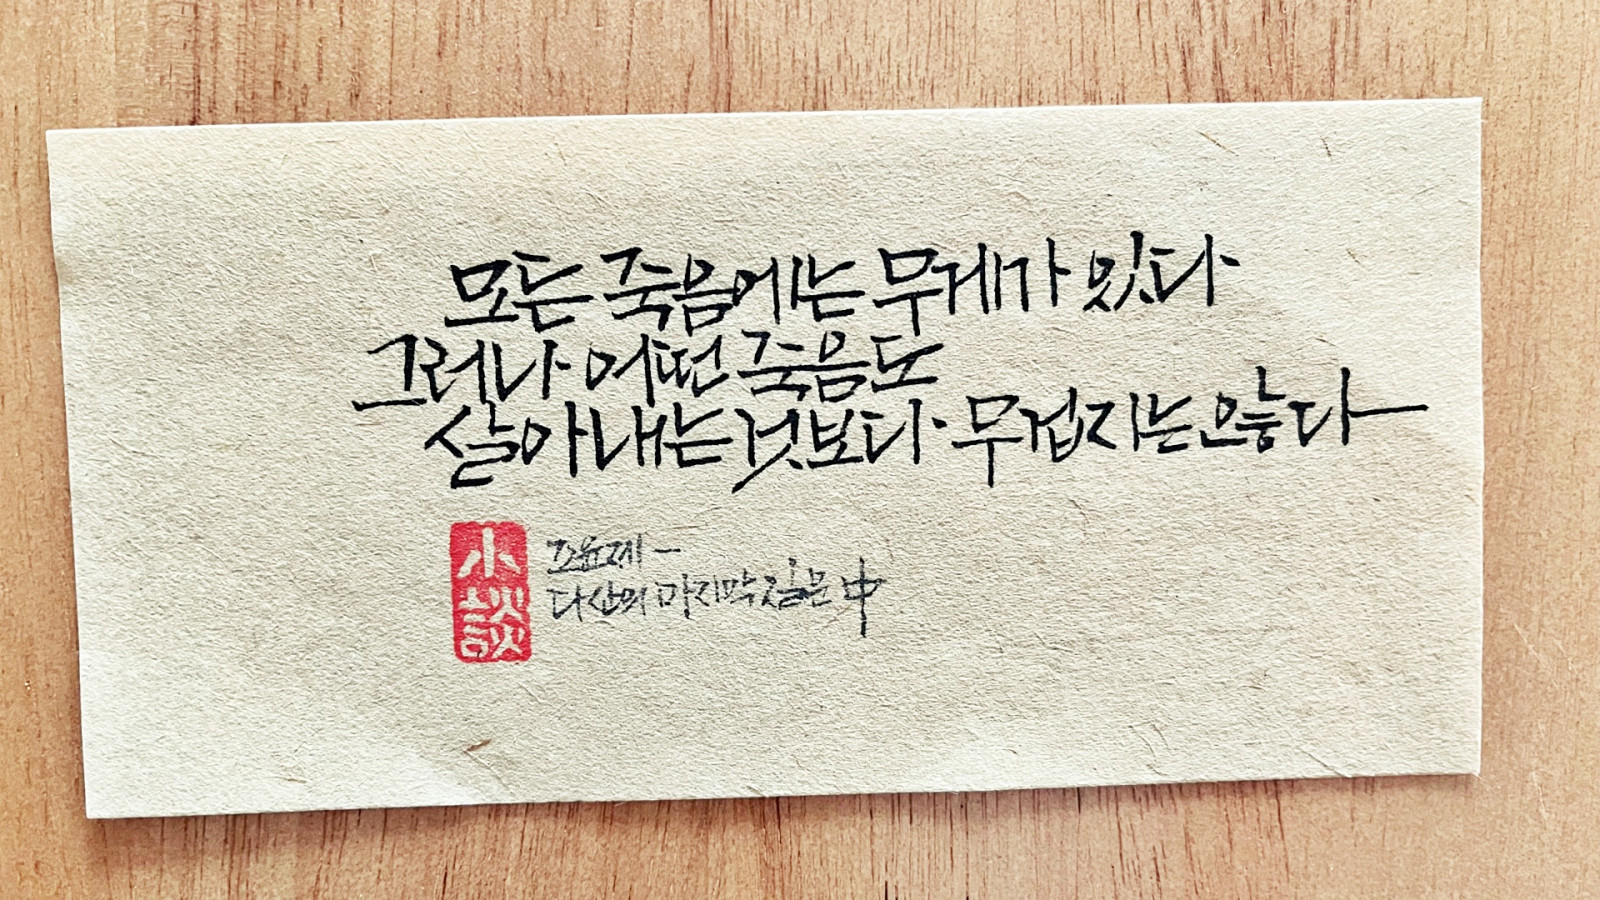 모든 죽음에는 무게가 있다
그러나 어떤 죽음도
살아내는 것보다 무겁지는 않다
小談
조윤제 -
다산의 마지막 질문 中